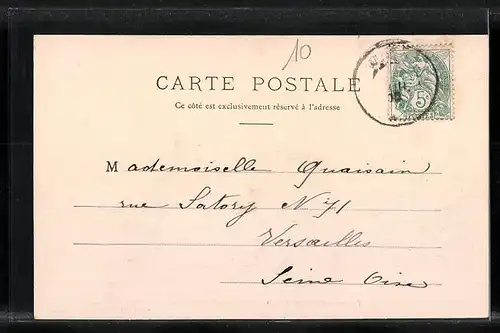 10
CARTE POSTALE
Ce côté est exclusivement réservé à l'adresse
5
Mademoiselle Quaisain
rue Satory N° 71
Versailles
Seine Oise